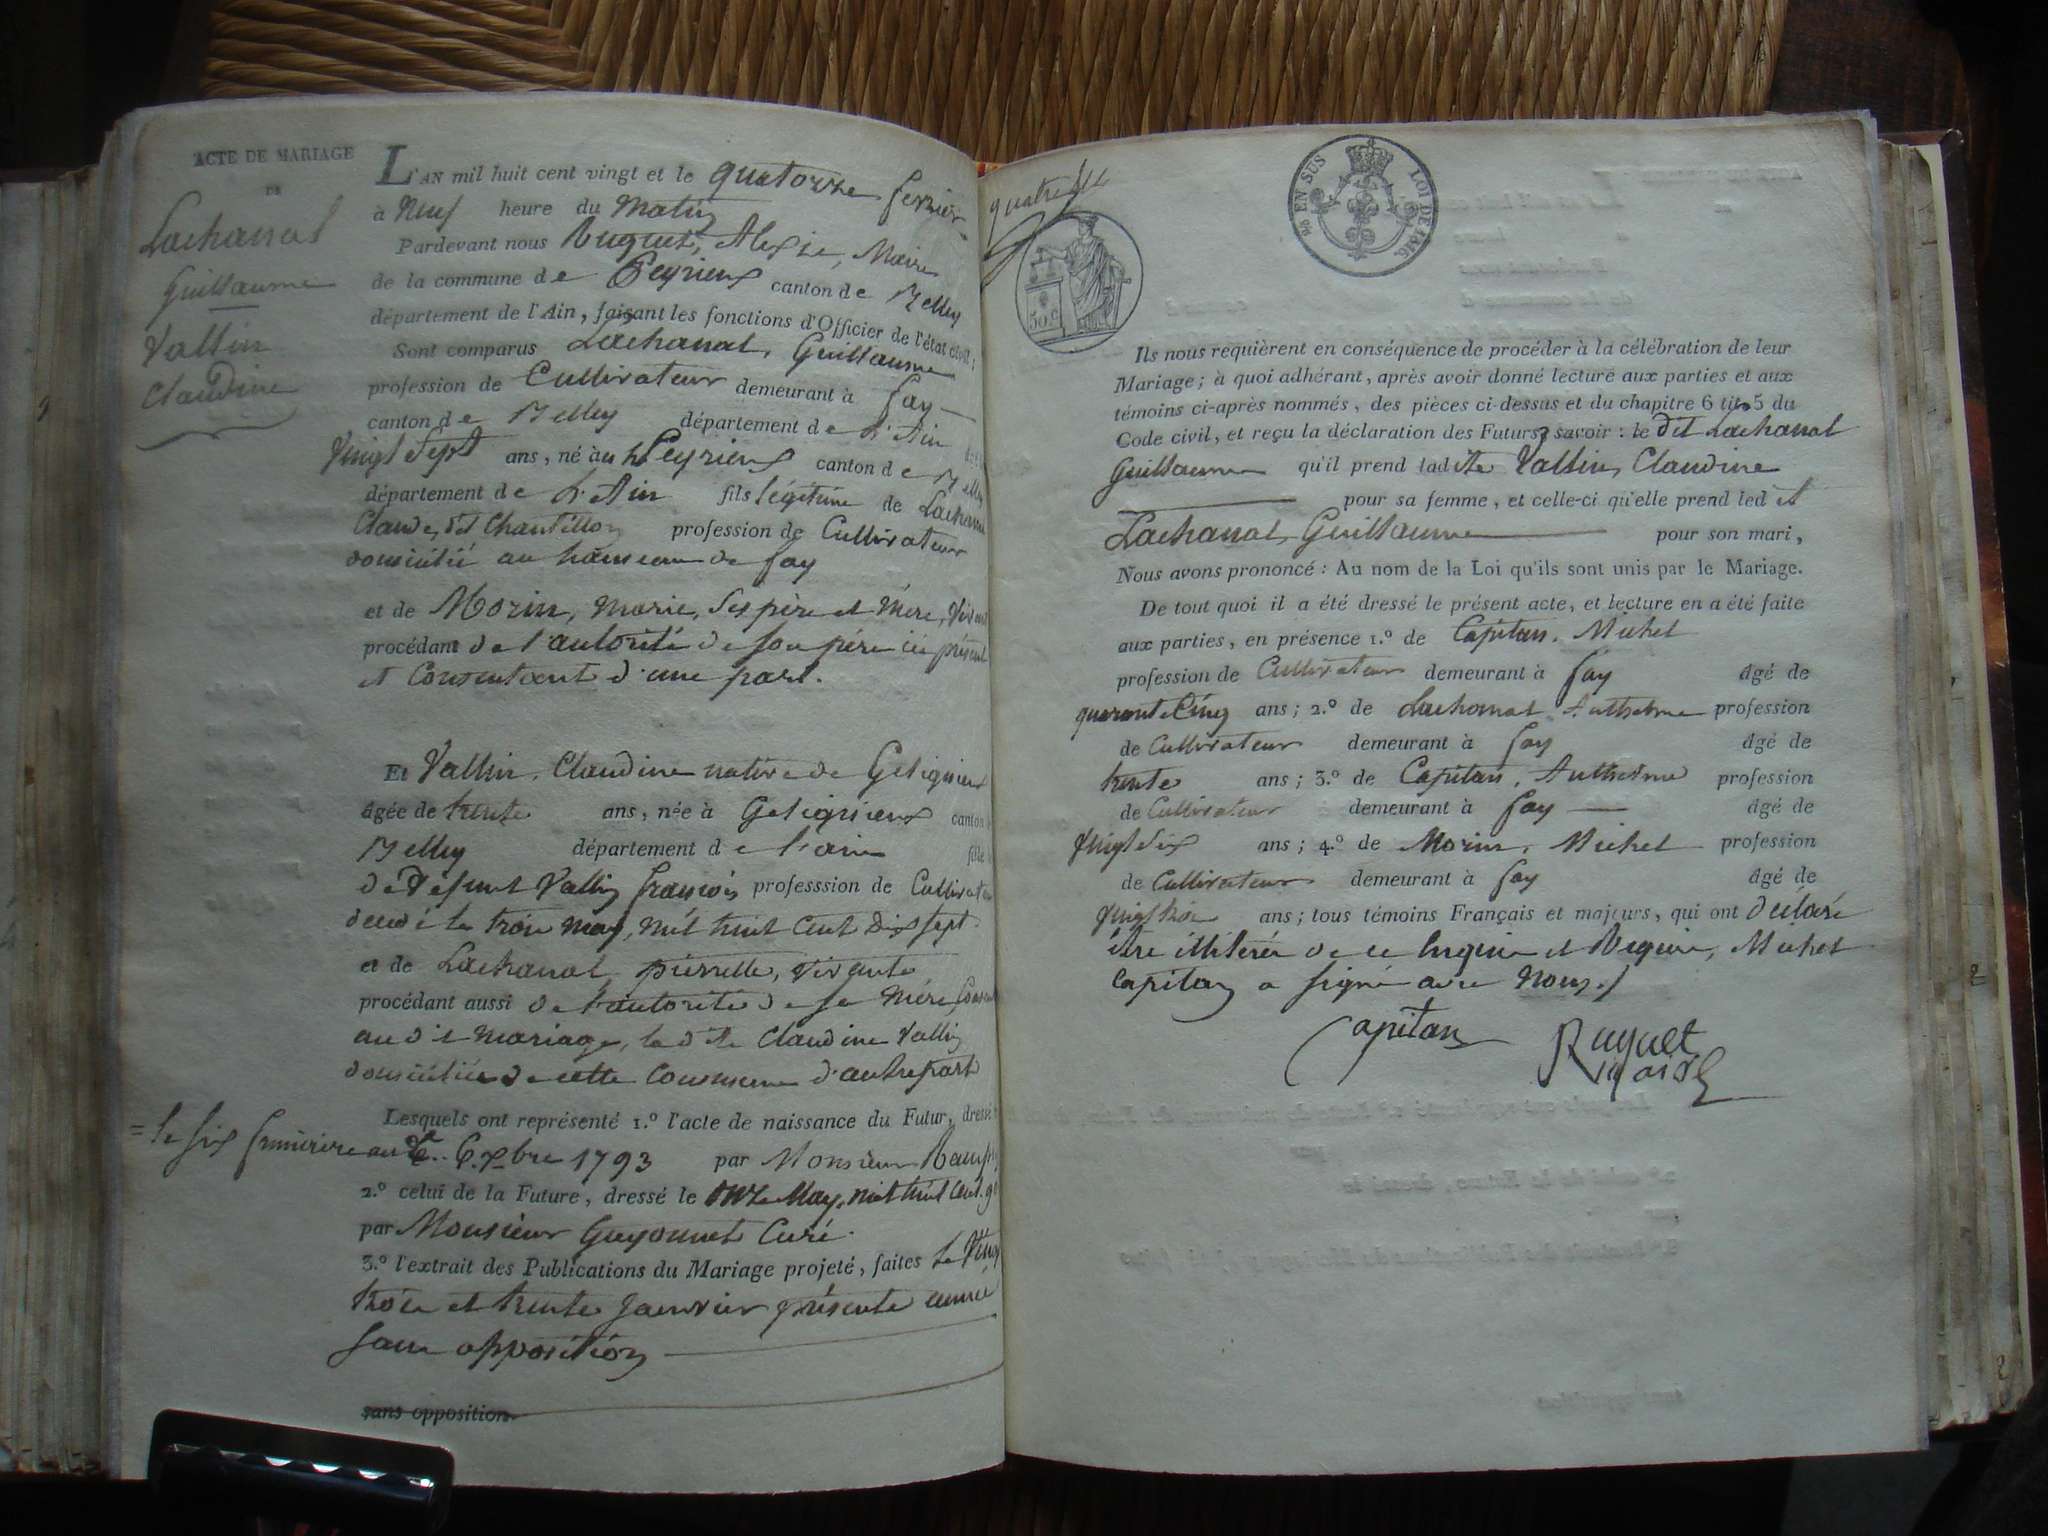 ACTE DE MARIAGE
DE
Lachanal
Guillaume
Vallin
Claudine
L'AN mil huit cent vingt et le quatorze fevrier
à Neuf heure du Matin
Pardevant nous Ruguet, Alexis, Maire
de la commune de Peyrieux canton de Belley
département de l'Ain, faisant les fonctions d'Officier de l'état civil;
Sont comparus Lachanal, Guillaume
profession de Cultivateur demeurant à fay
canton de Belley département de L'Ain
Vingt Sept ans, né au Peyrieux canton de Belley
département de L'Ain fils légitime de Lachanal
Claude, dit Chantillon profession de Cultivateur
domicilié au hameau de fay
et de Morin, Marie, Ses père et Mère, Vivant
procédant de l'autorité de son père ici présent
et Consentant d'une part.
Et Vallin, Claudine native de Gelignieux
âgée de trente ans, née à Gelignieux canton
Belley département de l'ain fille
de Défunt Vallin françois professsion de Cultivateur
décédé le trois may, mil huit Cent Dix sept
et de Lachanal, pierrette, vivante
procédant aussi de l'autorité de sa Mère,
au dit mariage, la dite Claudine Vallin
domiciliée de cette Commune d'autre part
Lesquels ont représenté 1.º l'acte de naissance du Futur, dressé
= le six frimaire an 6. Xbre 1793 par Monsieur
2.º celui de la Future, dressé le onze May, mil huit Cent
par Monsieur Guyonnet Curé.
3.º l'extrait des Publications du Mariage projeté, faites Le Vingt
trois et trente Janvier présente année
sans opposition
sans opposition
quatre
50 C
EN SUS LOI DE 1816
Ils nous requièrent en conséquence de procéder à la célébration de leur
Mariage; à quoi adhérant, après avoir donné lecture aux parties et aux
témoins ci-après nommés, des pièces ci-dessus et du chapitre 6 tit. 5 du
Code civil, et reçu la déclaration des Futurs, savoir: le dit Lachanal
Guillaume qu'il prend ladite Vallin, Claudine
pour sa femme, et celle-ci qu'elle prend ledit
Lachanal, Guillaume pour son mari,
Nous avons prononcé: Au nom de la Loi qu'ils sont unis par le Mariage.
De tout quoi il a été dressé le présent acte, et lecture en a été faite
aux parties, en présence 1.º de Capitan, Michel
profession de Cultivateur demeurant à fay âgé de
quarante Cinq ans; 2.º de Lachanal, Anthelme profession
de Cultivateur demeurant à fay âgé de
trente ans; 3.º de Capitan, Anthelme profession
de Cultivateur demeurant à fay âgé de
Vingt Six ans; 4.º de Morin, Michel profession
de Cultivateur demeurant à fay âgé de
Vingt trois ans; tous témoins Français et majeurs, qui ont déclaré
être illiterés de ce Enquis et Requis, Michel
Capitan a signé avec Nous./
Capitan Ruguet